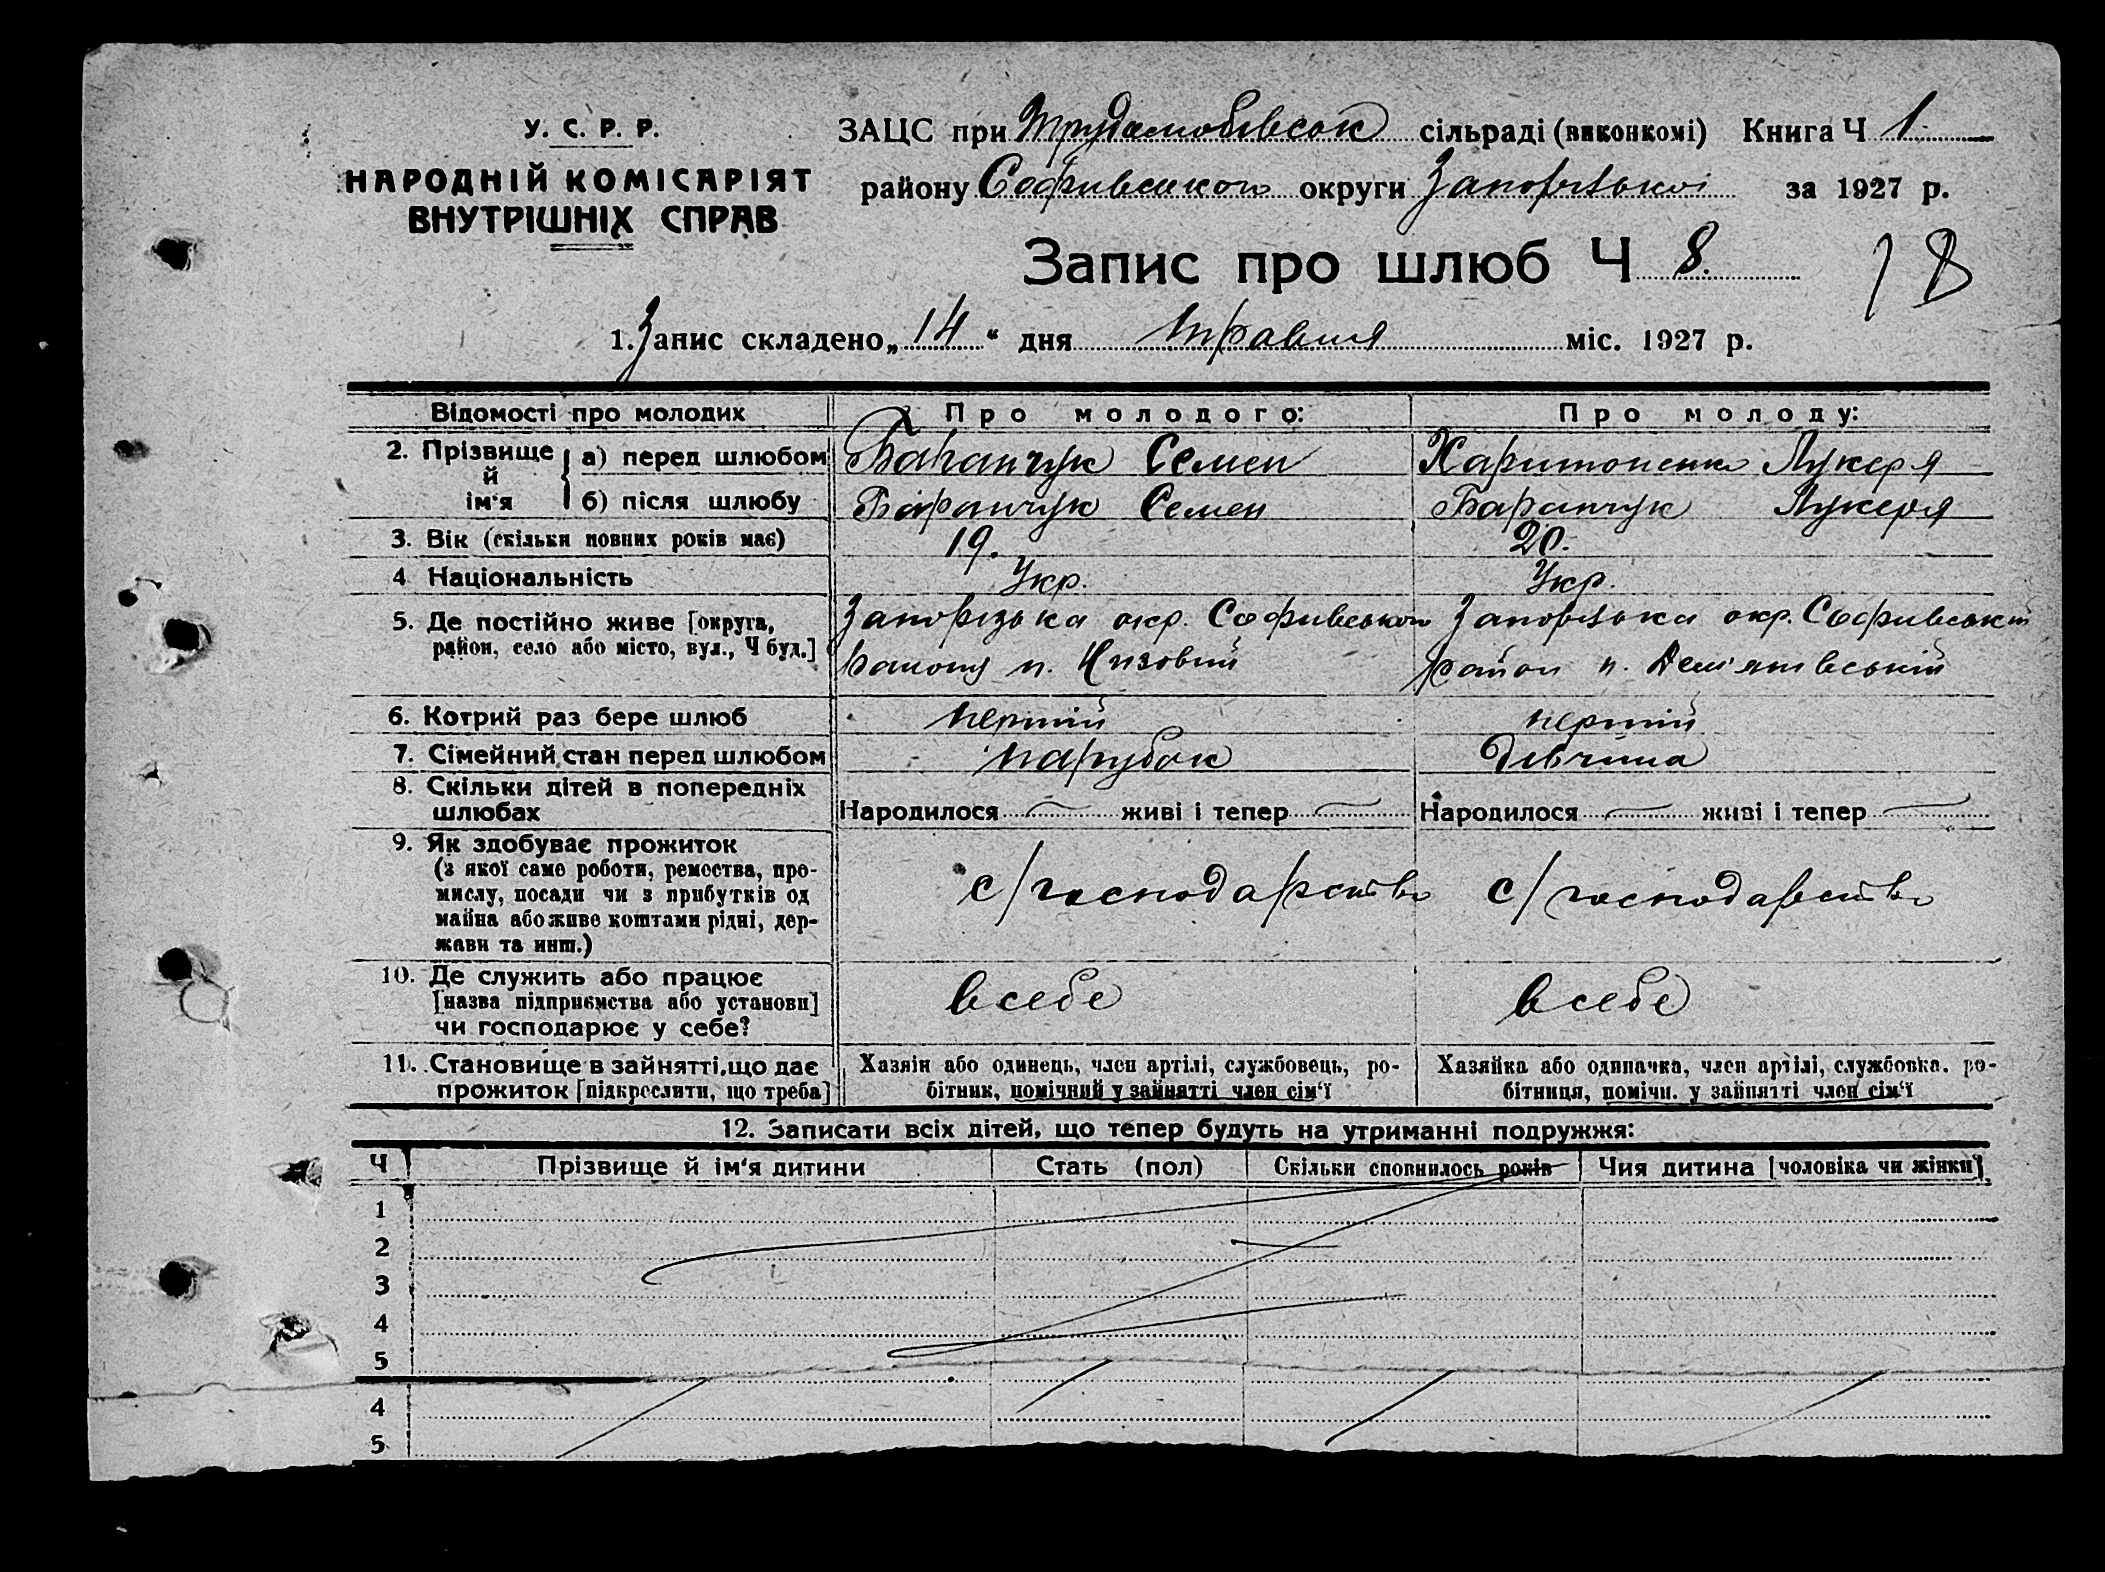 У. С. Р. Р.
НАРОДНІЙ КОМІСАРІЯТ
ВНУТРІШНІХ СПРАВ
ЗАЦС при сільраді (виконкомі) Книга Ч 1
району Софиевської округи Запорізької за 1927 р.
Запис про шлюб Ч 8.
18
1. Запис складено „ 14 “ дня травня міс. 1927 р.
Відомості про молодих Про молодого: Про молоду:
2. Прізвище й ім'я { а) перед шлюбом Баранчук Семен Харитоненко Лукеря
б) після шлюбу Баранчук Семен Баранчук Лукеря
3. Вік (скільки повних років має) 19. 20.
4 Національність Укр. Укр.
5. Де постійно живе [округа, Запорізька окр. Софивського Запорізька окр. Софивський
район, село або місто, вул., Ч буд.] району п. Низовий район п.
6. Котрий раз бере шлюб перший перший
7. Сімейний стан перед шлюбом парубок дівчина
8. Скільки дітей в попередніх
шлюбах Народилося — живі і тепер — Народилося — живі і тепер —
9. Як здобуває прожиток
(з якої саме роботи, ремества, про-
мислу, посади чи з прибутків од с/господарство с/господарство
майна або живе коштами рідні, дер-
жави та инш.)
10. Де служить або працює
[назва підприємства або установи] в себе в себе
чи господарює у себе?
11. Становище в зайнятті, що дає Хазяін або одинець, член артілі, службовець, ро- Хазяйка або одиначка, член артілі, службовка, ро-
прожиток [підкреслити, що треба] бітник, помічний у зайнятті член сім'ї бітниця, помічн. у зайнятті член сім'ї
12. Записати всіх дітей, що тепер будуть на утриманні подружжя:
Ч Прізвище й ім'я дитини Стать (пол) Скільки сповнилось років Чия дитина [чоловіка чи жінки]
1
2
3
4
5
4
5